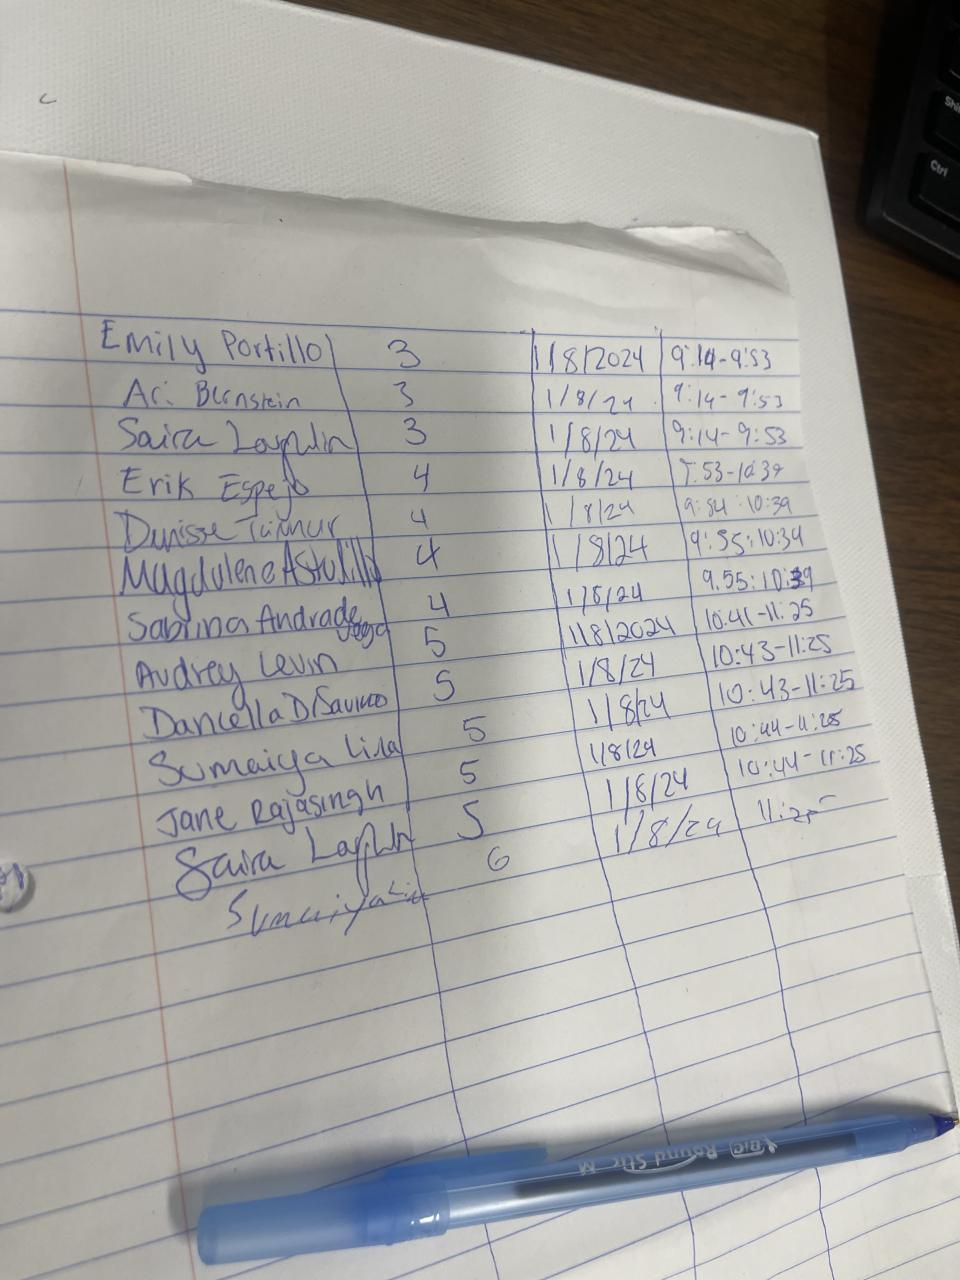 Shi
Ctrl
Emily Portillo 3 1/8/2024 9:14-9:53
Ari Bernstein 3 1/8/24 9:14-9:53
Saira 3 1/8/24 9:14-9:53
Erik Espejo 4 1/8/24 9:53-10:39
4 1/8/24 9:54:10:39
Magdalene 4 1/8/24 9:55:10:39
Sabrina Andrade 4 1/8/24 9.55:10:39
Audrey Levin 5 1/8/2024 10:41-11:25
Daniella 5 1/8/24 10:43-11:25
Sumaiya 5 1/8/24 10:43-11:25
Jane Rajasingh 5 1/8/24 10:44-11:25
Saira 5 1/8/24 10:44-11:25
Sumaiya 6 1/8/24
BIC Round Stic M